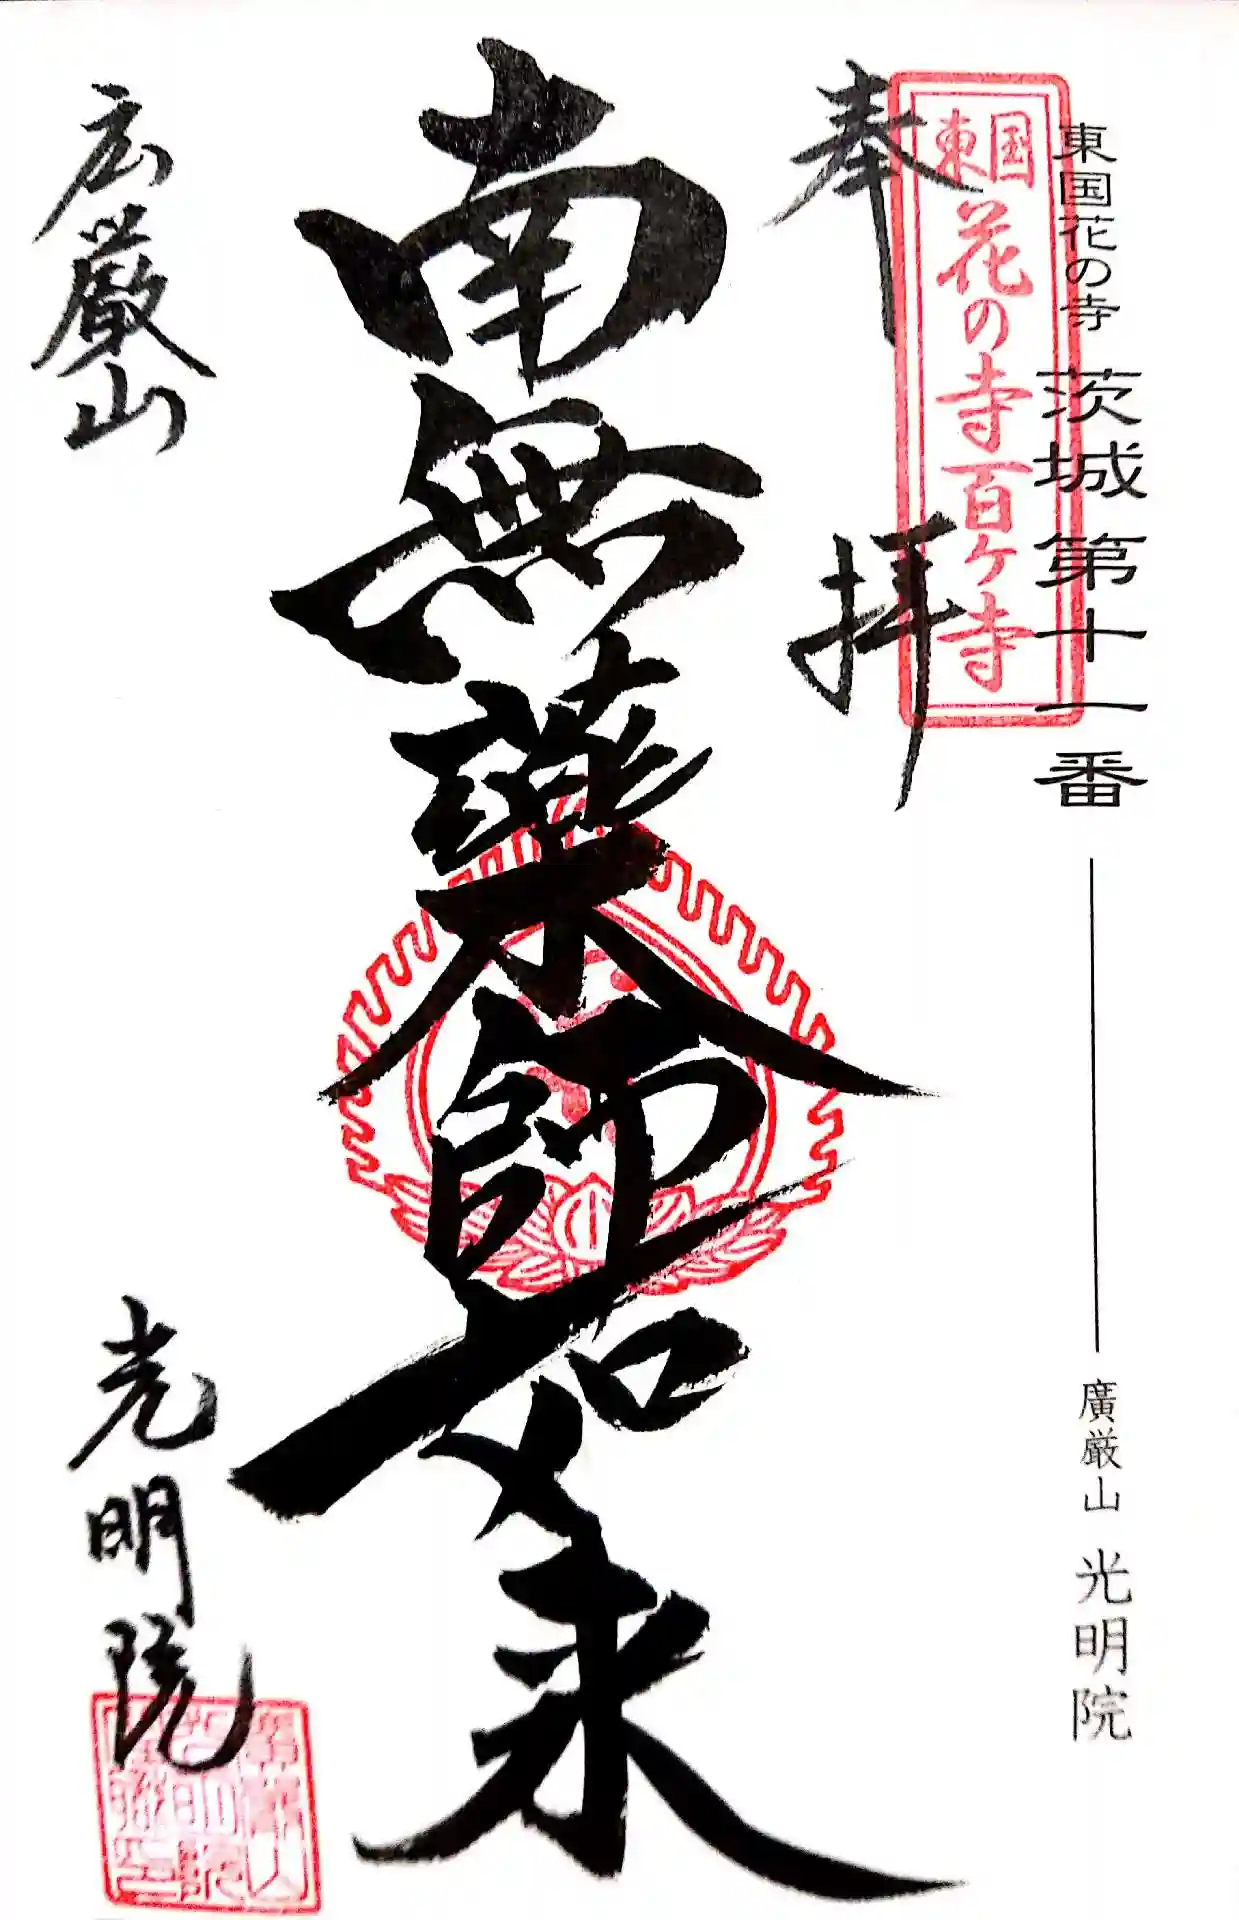 東国花の寺 茨城第十一番 廣厳山 光明院
東国花の寺百ヶ寺
奉拝
南無薬師如来
広厳山
光明院